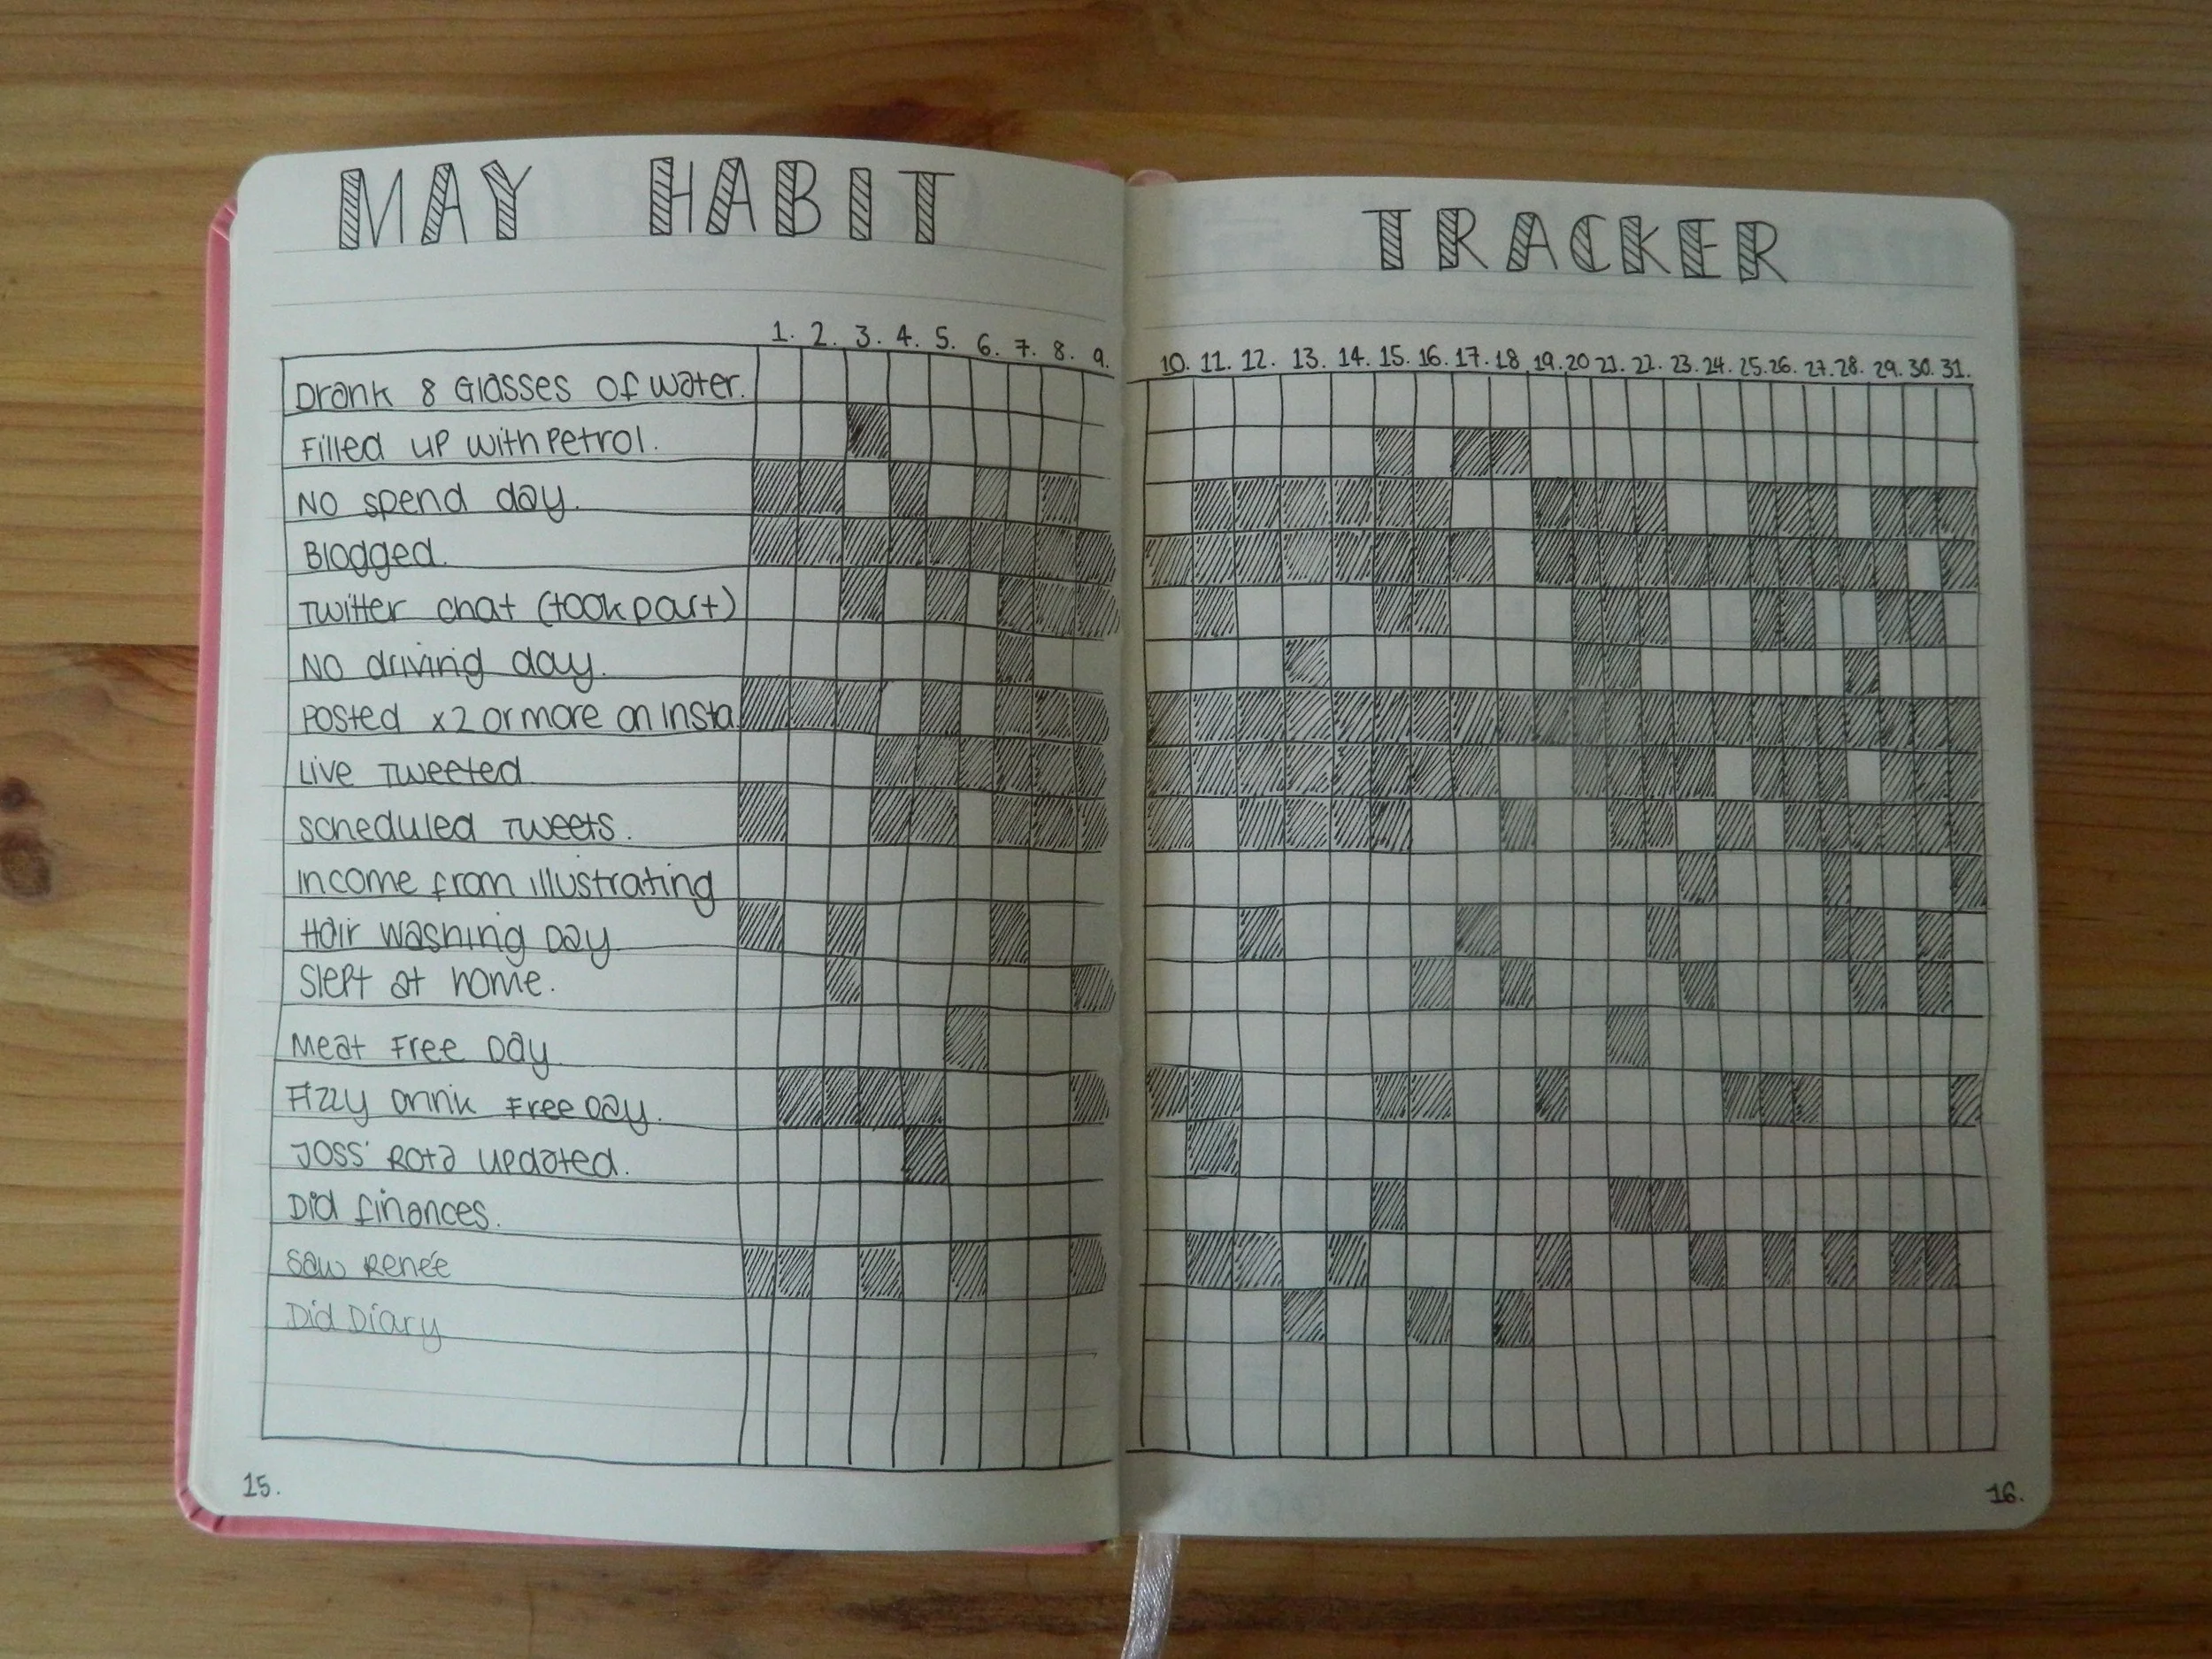 MAY HABIT TRACKER
1. 2. 3. 4. 5. 6. 7. 8. 9. 10. 11. 12. 13. 14. 15. 16. 17. 18. 19. 20 21. 22. 23. 24. 25. 26. 27. 28. 29. 30. 31.
Drank 8 Glasses of water.
Filled up with petrol.
No spend day.
Blogged.
Twitter chat (took part)
No driving day.
Posted x2 or more on Insta.
Live Tweeted.
Scheduled Tweets.
Income from illustrating
Hair Washing Day
Slept at home.
Meat Free Day
Fizzy Drink Free Day.
Joss' Rota updated.
Did finances.
Saw Renée
Did Diary
15.
16.